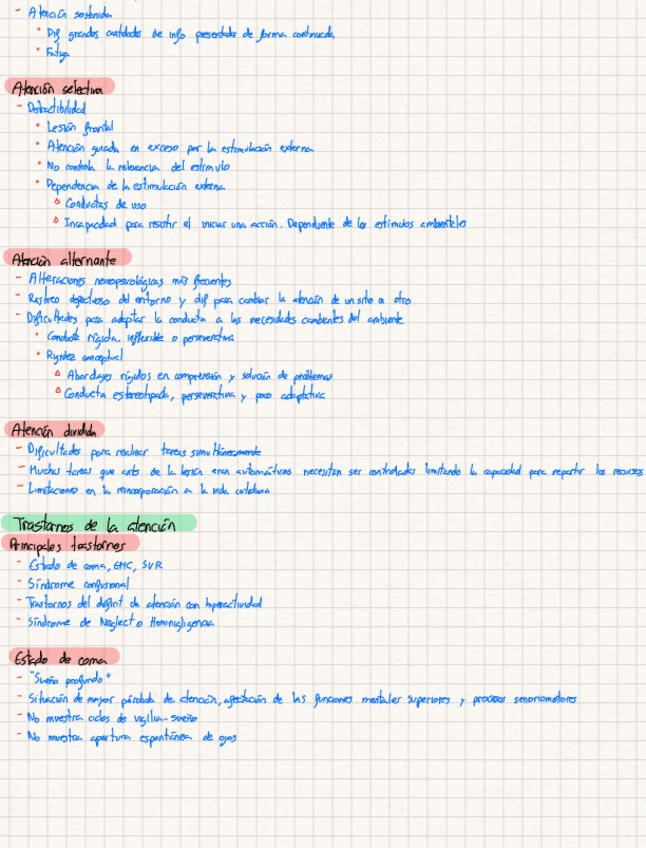 - Atención sostenida
• Dif grandes cantidades de info presentada de forma continuada
• Fatiga
Atención selectiva
- Distractibilidad
• Lesión frontal
• Atención guiada en exceso por la estimulación externa
• No controla la relevancia del estímulo
• Dependencia de la estimulación externa
Conductas de uso
Incapacidad para resistir el iniciar una acción. Dependiente de los estímulos ambientales
Atención alternante
- Alteraciones neuropsicológicas más frecuentes
- Rastreo defectuoso del entorno y dif para cambiar la atención de un sitio a otro
- Dificultades para adaptar la conducta a las necesidades cambiantes del ambiente
• Conducta rígida, inflexible o perseverativa
• Rigidez conceptual
Abordajes rígidos en comprensión y solución de problemas
Conducta estereotipada, perseverativa y poco adaptativa
Atención dividida
- Dificultades para realizar tareas simultáneamente
- Muchas tareas que antes de la lesión eran automáticas necesitan ser controladas limitando la capacidad para repartir los recursos
- Limitaciones en la reincorporación a la vida cotidiana
Trastornos de la atención
Principales trastornos
- Estado de coma, EMC, SVR
- Síndrome confusional
- Trastornos del déficit de atención con hiperactividad
- Síndrome de Neglect o Heminegligencia
Estado de coma
- "Sueño profundo"
- Situación de mayor pérdida de atención, afectación de las funciones mentales superiores y procesos sensoriomotores
- No muestra ciclos de vigilia-sueño
- No muestra apertura espontánea de ojos